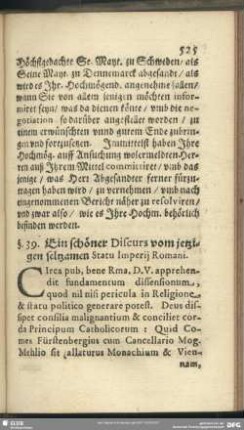 525
Höchstgedachte Se. Mayt. zu Schweden / als
Seine Mayt. zu Dennemarck abgesandt / als
wird es Ihr. Hochmögend. angenehme fallen /
wann Sie von allem jenigen möchten infor-
miret seyn / was da dienen könte / umb die ne-
gotiation so darüber angestält worden / zu
einem erwünschten unnd gutem Ende zubrin-
gen und fortzusetzen. Immittelst haben Ihre
Hochmög. auff Ansuchung wolermeldten Her-
ren auß Ihrem Mittel committiret / umb das-
jenige / was Herr Abgesandter ferner fürzu-
tragen haben wird / zu vernehmen / umb nach
eingenommenen Bericht näher zu resolviren /
und zwar also / wie es Ihre Hochm. behörlich
befinden werden.
§. 39. Ein schöner Discurs vom jetzi-
gen seltzamen Statu Imperij Romani.
Circa pub, bene Rma. D. V. apprehen-
dit fundamentum dissensionum,
quod nil nisi pericula in Religione
& statu politico generare potest. Deus dis-
sipet consilia malignantium & conciliet cor-
da Principum Catholicorum : Quid Co-
mes Fürstenbergius cum Cancellario Mog.
Mehlio sit allaturus Monachium & Vien-
nam,